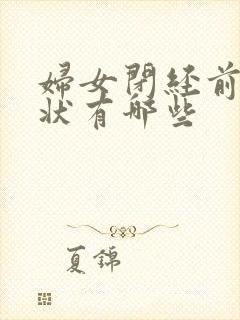 婦女閉経前
状有哪些
夏錦